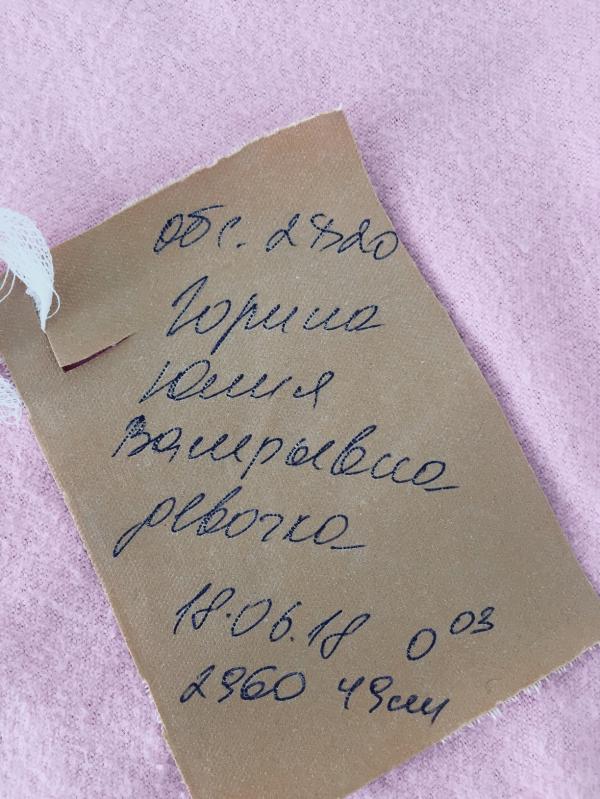 обс. 2820
Горина
Юлия
Валерьевна
девочка
18.06.18 0 03
2960 49см